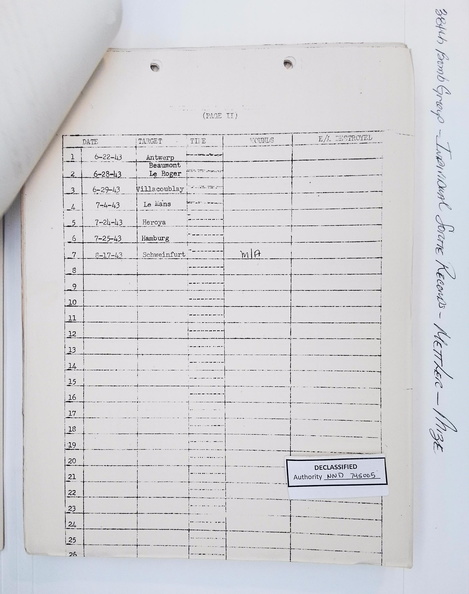 (PAGE II)
DATE TARGET TIME WOUNDS E/A DESTROYED
1 6-22-43 Antwerp
Beaumont
2 6-28-43 Le Roger
3 6-29-43 Villacoublay
4 7-4-43 Le Mans
5 7-24-43 Heroya
6 7-25-43 Hamburg
7 8-17-43 Schweinfurt MIA
8
9
10
11
12
13
14
15
16
17
18
19
20
21
22
23
24
25
26
DECLASSIFIED
Authority NND 745005
384th Bomb Group - Individual Sortie Record - Mettlen - Mize